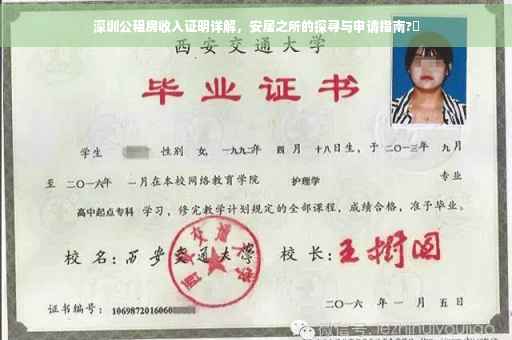 深圳公租房收入证明详解，安居之所的探寻与申请指南?
西安交通大学
毕业证书
学生 性别 女, 一九九二年 四 月 十八日生，于 二〇一三年 九月
至 二〇一六年 一月在本校网络教育学院 护理学 专业
高中起点专科 学习，修完教学计划规定的全部课程，成绩合格，准予毕业。
校 名：西安交通大学 校 长：王树国
西安交通大学
证书编号： 1069872016060
二〇一六 年 一 月 五 日
微信号: jezhihuiyoujiao